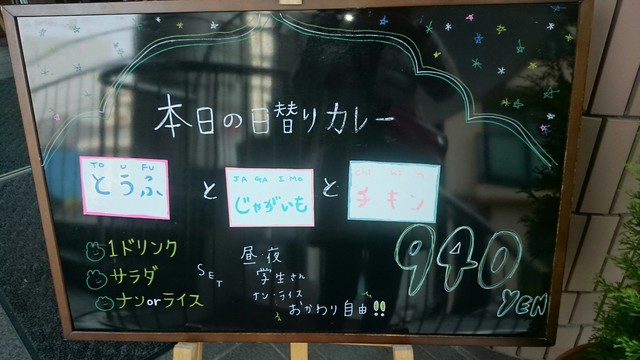 本日の日替りカレー
TO U FU
とうふ
と
JA GA I MO
じゃがいも
と
CHI KI N
チキン
1ドリンク
サラダ
ナンorライス
SET
昼・夜
学生さん
ナン・ライス
おかわり自由!!
940
YEN